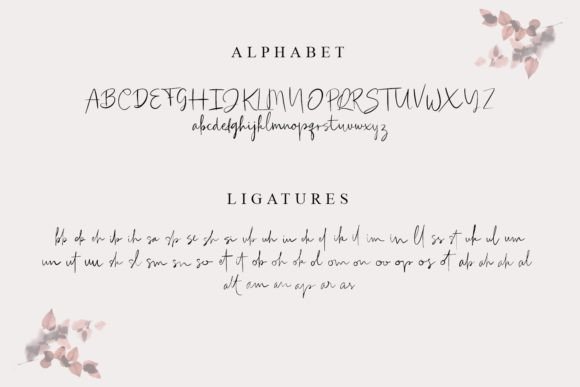 ALPHABET
ABCDEFGHIJKLMNOPQRSTUVWXYZ
abcdefghijklmnopqrstuvwxyz
LIGATURES
bb ch ib ih sa sp se sh si ub uh in ek el ik il im in ll ss st uk ul um
un ut uu sk sl sm sn so et it ob oh ok ol om on oo op os ot ab ah ak al
att am an ap ar as